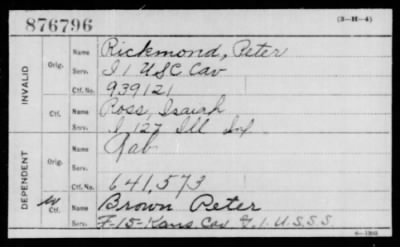 876796
(3-H-4)
INVALID
Orig.
Name Rickmond, Peter
Serv. I 1 USC Cav
Ctf. No. 939121
Ctf.
Name Ross, Isaiah
Serv. I 127 Ill Inf.
DEPENDENT
Orig.
Name Gab
Serv.
Ctf. No. 641,573
W Ctf.
Name Brown Peter
Serv. F-15-Kans Cav G. 1. U.S.S.S.